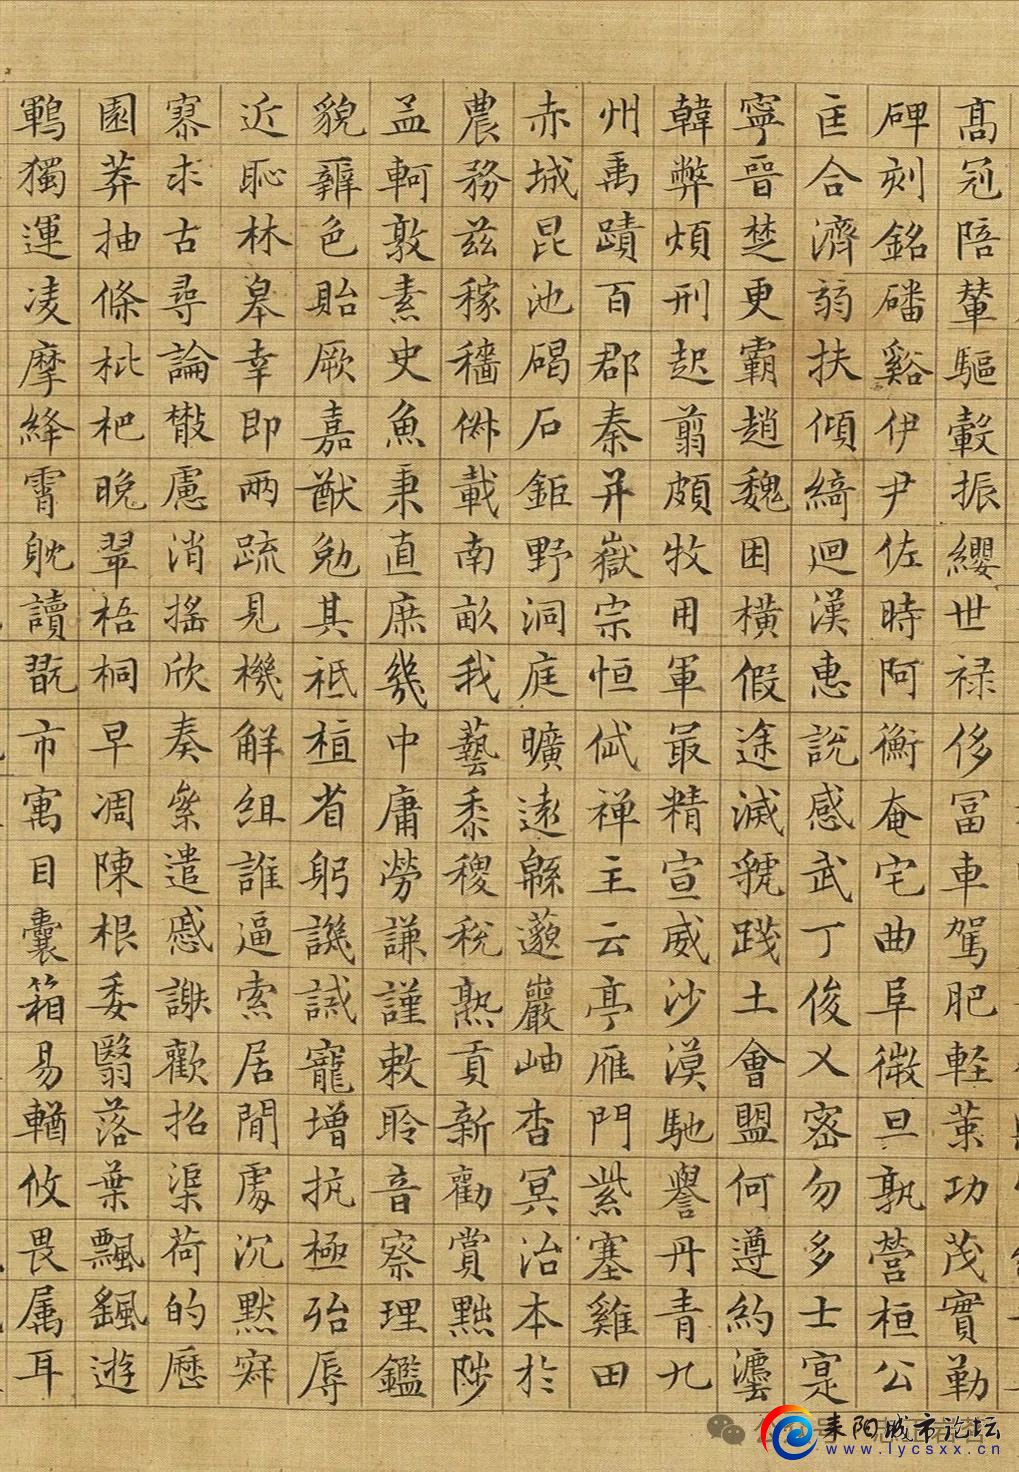 高冠陪輦驅轂振纓世禄侈冨車駕肥軽策功茂實勒
碑刻銘磻谿伊尹佐時阿衡奄宅曲阜微旦孰營桓公
匡合濟弱扶傾綺迴漢惠說感武丁俊乂密勿多士寔
寧晉楚更霸趙魏困横假途滅虢踐土會盟何遵約灋
韓弊煩刑起翦頗牧用軍最精宣威沙漠馳譽丹青九
州禹蹟百郡秦并嶽宗恒岱禅主云亭雁門紫塞雞田
赤城昆池碣石鉅野洞庭曠遠緜邈巖岫杳冥治本於
農務茲稼穡俶載南畝我藝黍稷稅熟貢新勸賞黜陟
孟軻敦素史魚秉直庶幾中庸勞謙謹敕聆音察理鑑
貌辨色貽厥嘉猷勉其祗植省躬譏誡寵增抗極殆辱
近恥林皋幸即兩疏見機解組誰逼索居閒處沉默寂
寥求古尋論散慮消摇欣奏累遣慼謝歡招渠荷的歷
園莽抽條枇杷晚翠梧桐早凋陳根委翳落葉飄颻遊
鵾獨運凌摩絳霄耽讀翫市寓目囊箱易輶攸畏属耳
耒阳城市论坛
www.lycsxx.cn